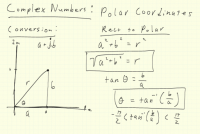 Complex Numbers: Polar Coordinates
Conversion:
a + jb
Im
r
b
θ
a
Rect to Polar
a² + b² = r²
√a² + b² = r
tan θ = b/a
θ = tan⁻¹(b/a)
-π/2 < tan⁻¹(b/a) < π/2